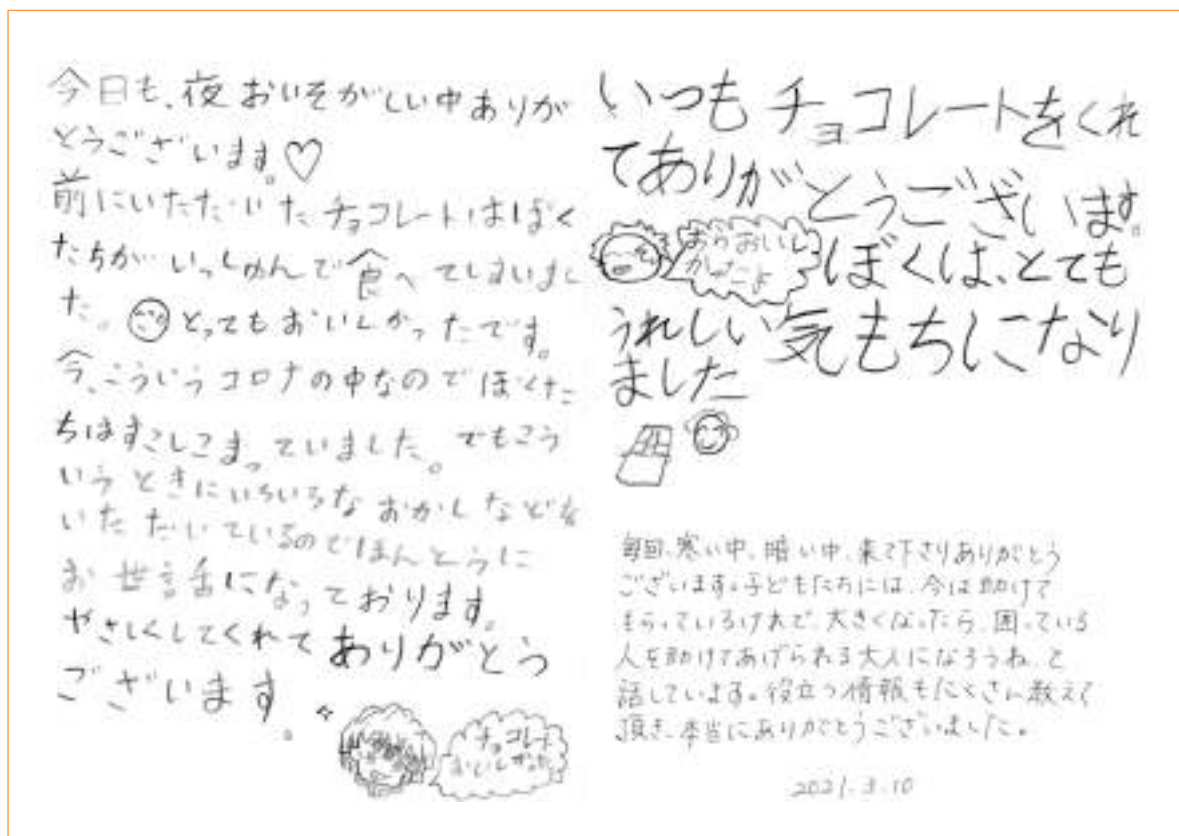 今日も、夜おいそがしい中ありが
とうございます。♡
前にいただいたチョコレートはぼく
たちがいっしゅんで食べてしまいまし
た。とってもおいしかったです。
今、こういうコロナの中なのでぼくた
ちはすこしこまっていました。でもこう
いうときにいろいろなおかしなどを
いただいているのでほんとうに
お世話になっております。
やさしくしてくれてありがとう
ございます。
チョコレート
おいしかった
いつもチョコレートをくれ
てありがとうございます。
おいし
かった
ぼくは、とても
うれしい気もちになり
ました
毎回、寒い中、暗い中、来て下さりありがとう
ございます。子どもたちには、今は助けて
もらっているけれど、大きくなったら、困っている
人を助けてあげられる大人になろうね、と
話しています。役立つ情報もたくさん教えて
頂き、本当にありがとうございました。
2021.3.10